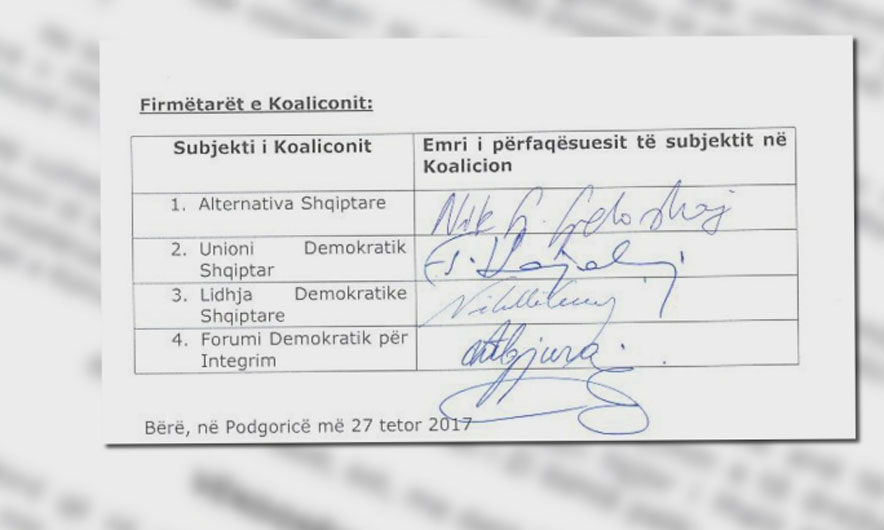 Firmëtarët e Koaliconit:
Subjekti i Koaliconit
Emri i përfaqësuesit të subjektit në
Koalicion
1. Alternativa Shqiptare
Nik G. Gjeloshaj
2. Unioni Demokratik
Shqiptar
3. Lidhja Demokratike
Shqiptare
4. Forumi Demokratik për
Integrim
Bërë, në Podgoricë më 27 tetor 2017